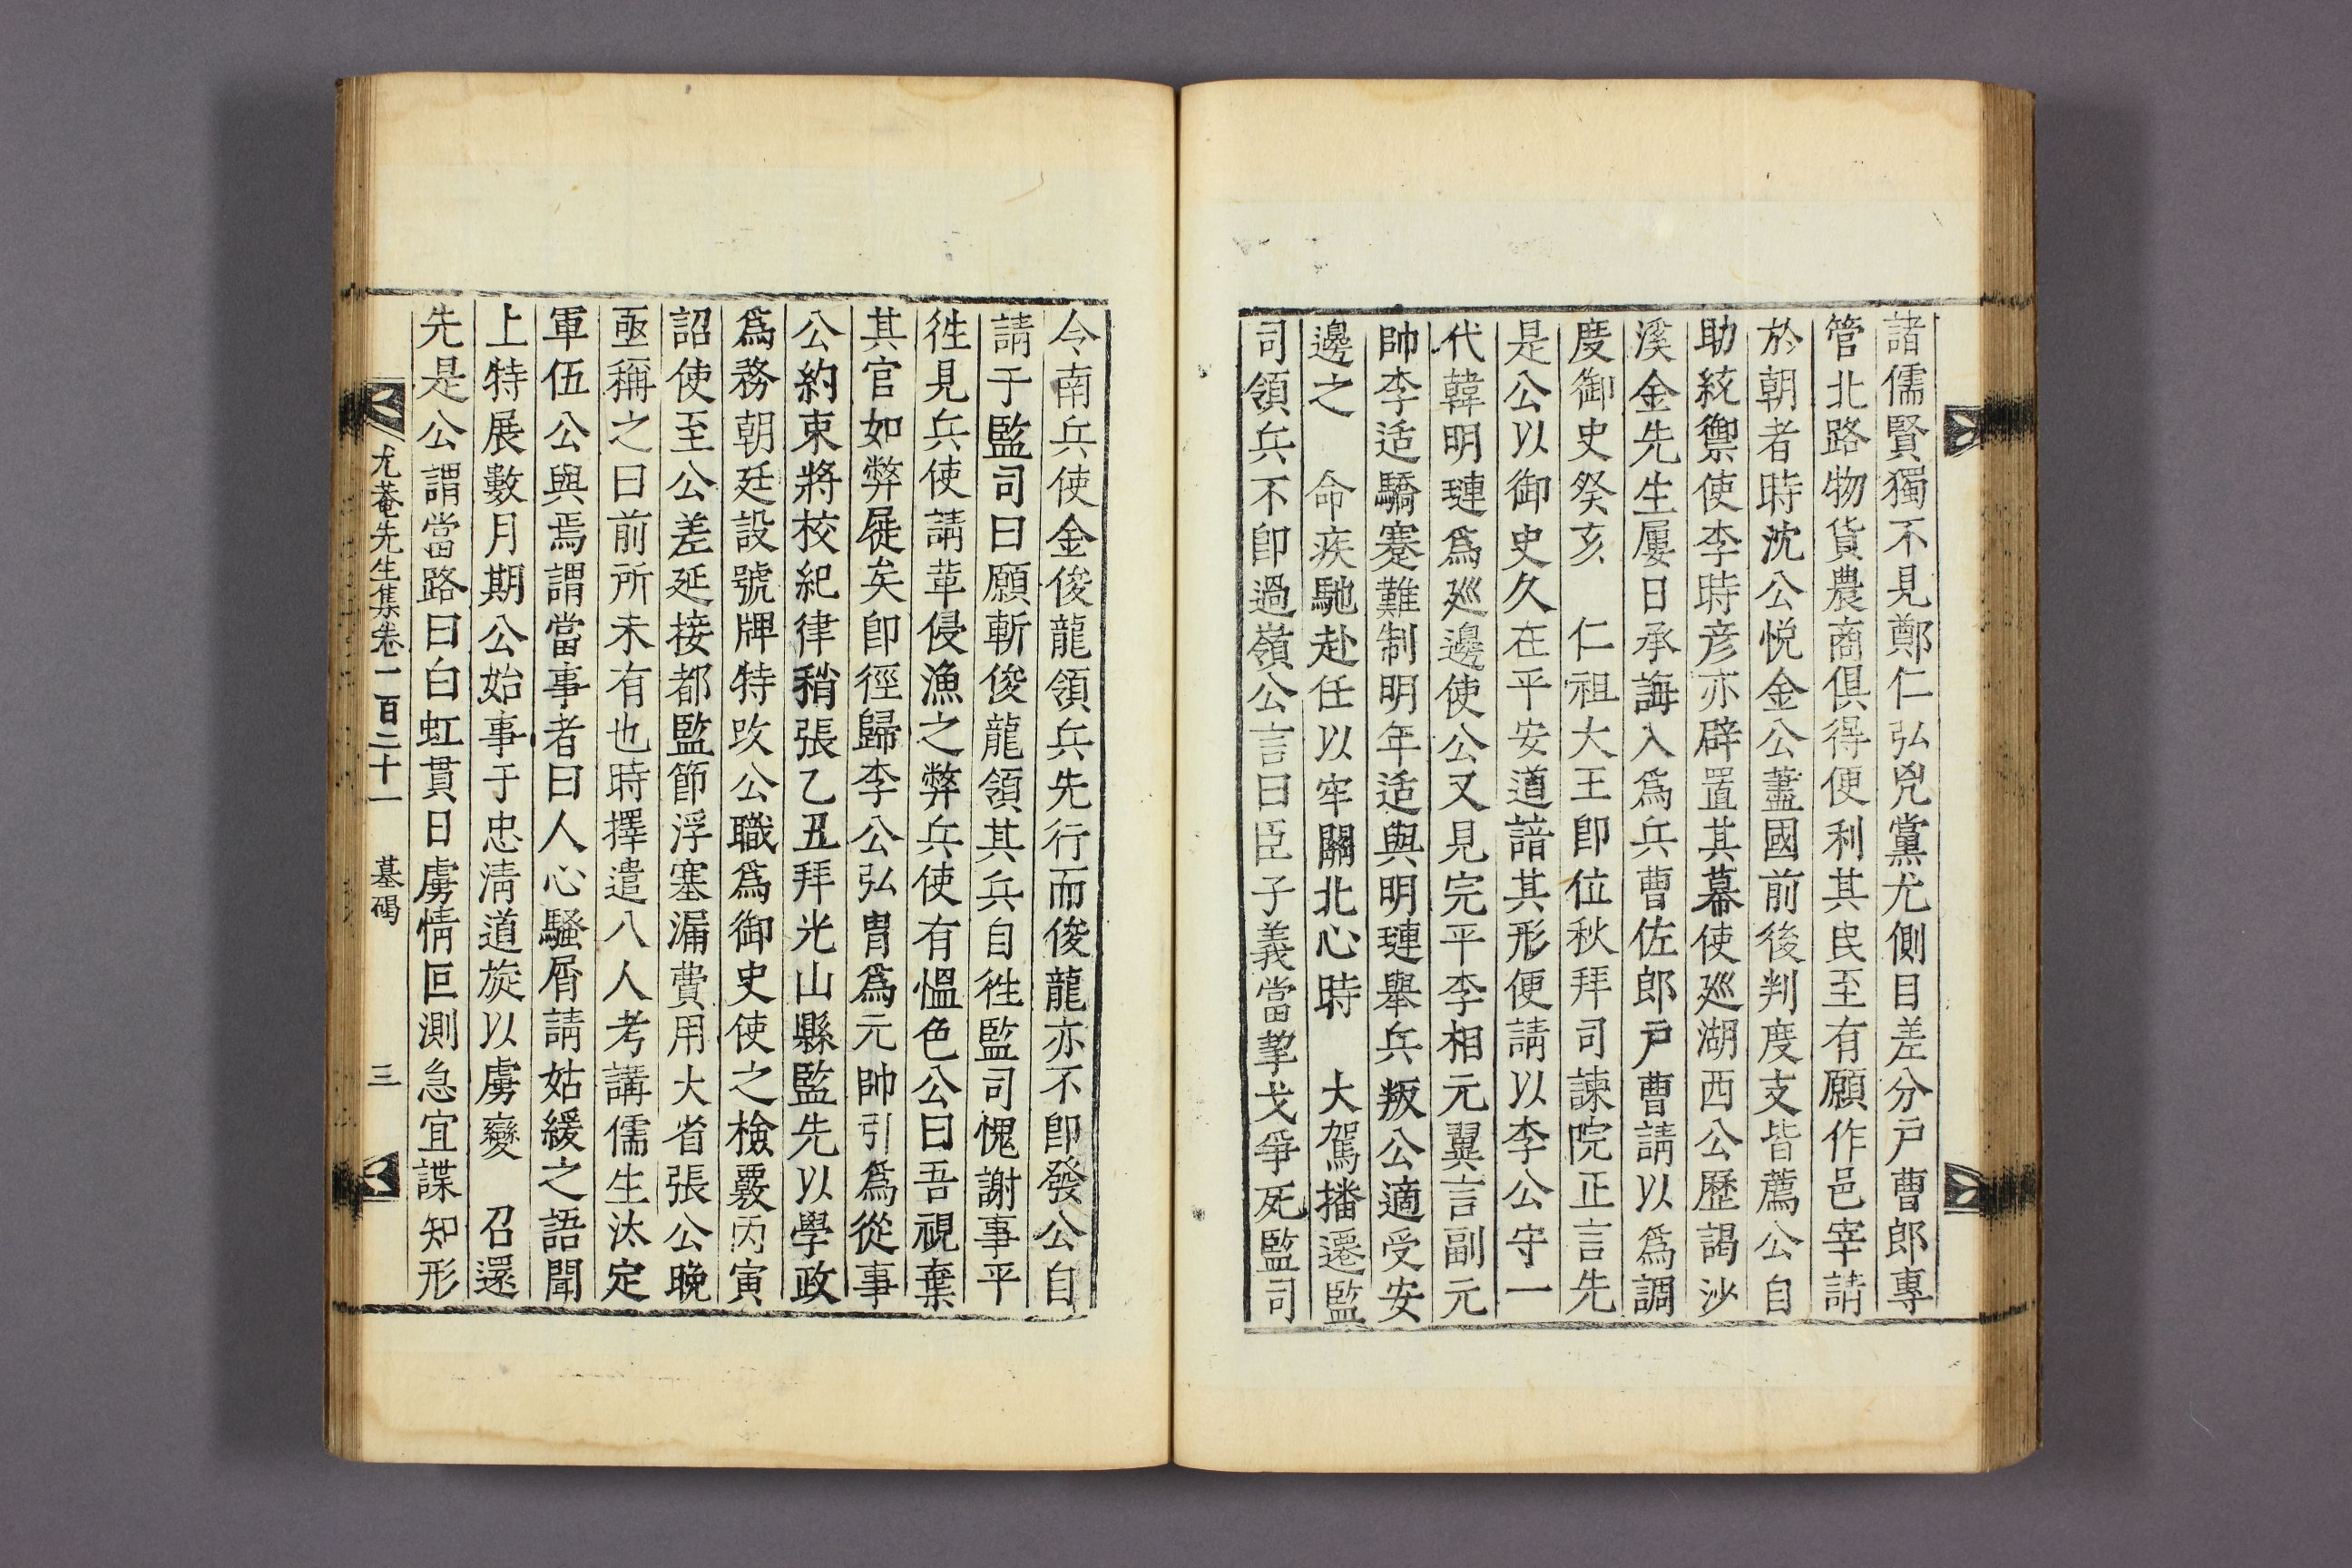 諸儒賢獨不見鄭仁弘兇黨尤側目差分戶曹郎專
管北路物貨農商俱得便利其民至有願作邑宰請
於朝者時沈公悅金公藎國前後判度支皆薦公自
助綂禦使李時彦亦辟置其幕使廵湖西公歷謁沙
溪金先生屢日承誨入爲兵曹佐郎戶曹請以爲調
度御史癸亥　仁祖大王卽位秋拜司諫院正言先
是公以御史久在平安道諳其形便請以李公守一
代韓明璉爲廵邊使公又見完平李相元翼言副元
帥李适驕蹇難制明年适與明璉擧兵叛公適受安
邊之　命疾馳赴任以牢關北心時　大駕播遷監
司領兵不卽過嶺公言曰臣子義當挈戈爭死監司
今南兵使金俊龍領兵先行而俊龍亦不卽發公自
請于監司曰願斬俊龍領其兵自徃監司愧謝事平
徃見兵使請革侵漁之弊兵使有慍色公曰吾視棄
其官如弊屣矣卽徑歸李公弘胄爲元帥引爲從事
公約束將校紀律稍張乙丑拜光山縣監先以學政
爲務朝廷設號牌特改公職爲御史使之檢覈丙寅
詔使至公差延接都監節浮塞漏費用大省張公晚
亟稱之曰前所未有也時擇遣八人考講儒生汰定
軍伍公與焉謂當事者曰人心騷屑請姑緩之語聞
上特展數月期公始事于忠淸道旋以虜變　召還
先是公謂當路曰白虹貫日虜情叵測急宜諜知形
尤菴先生集卷一百二十一　墓碣　三